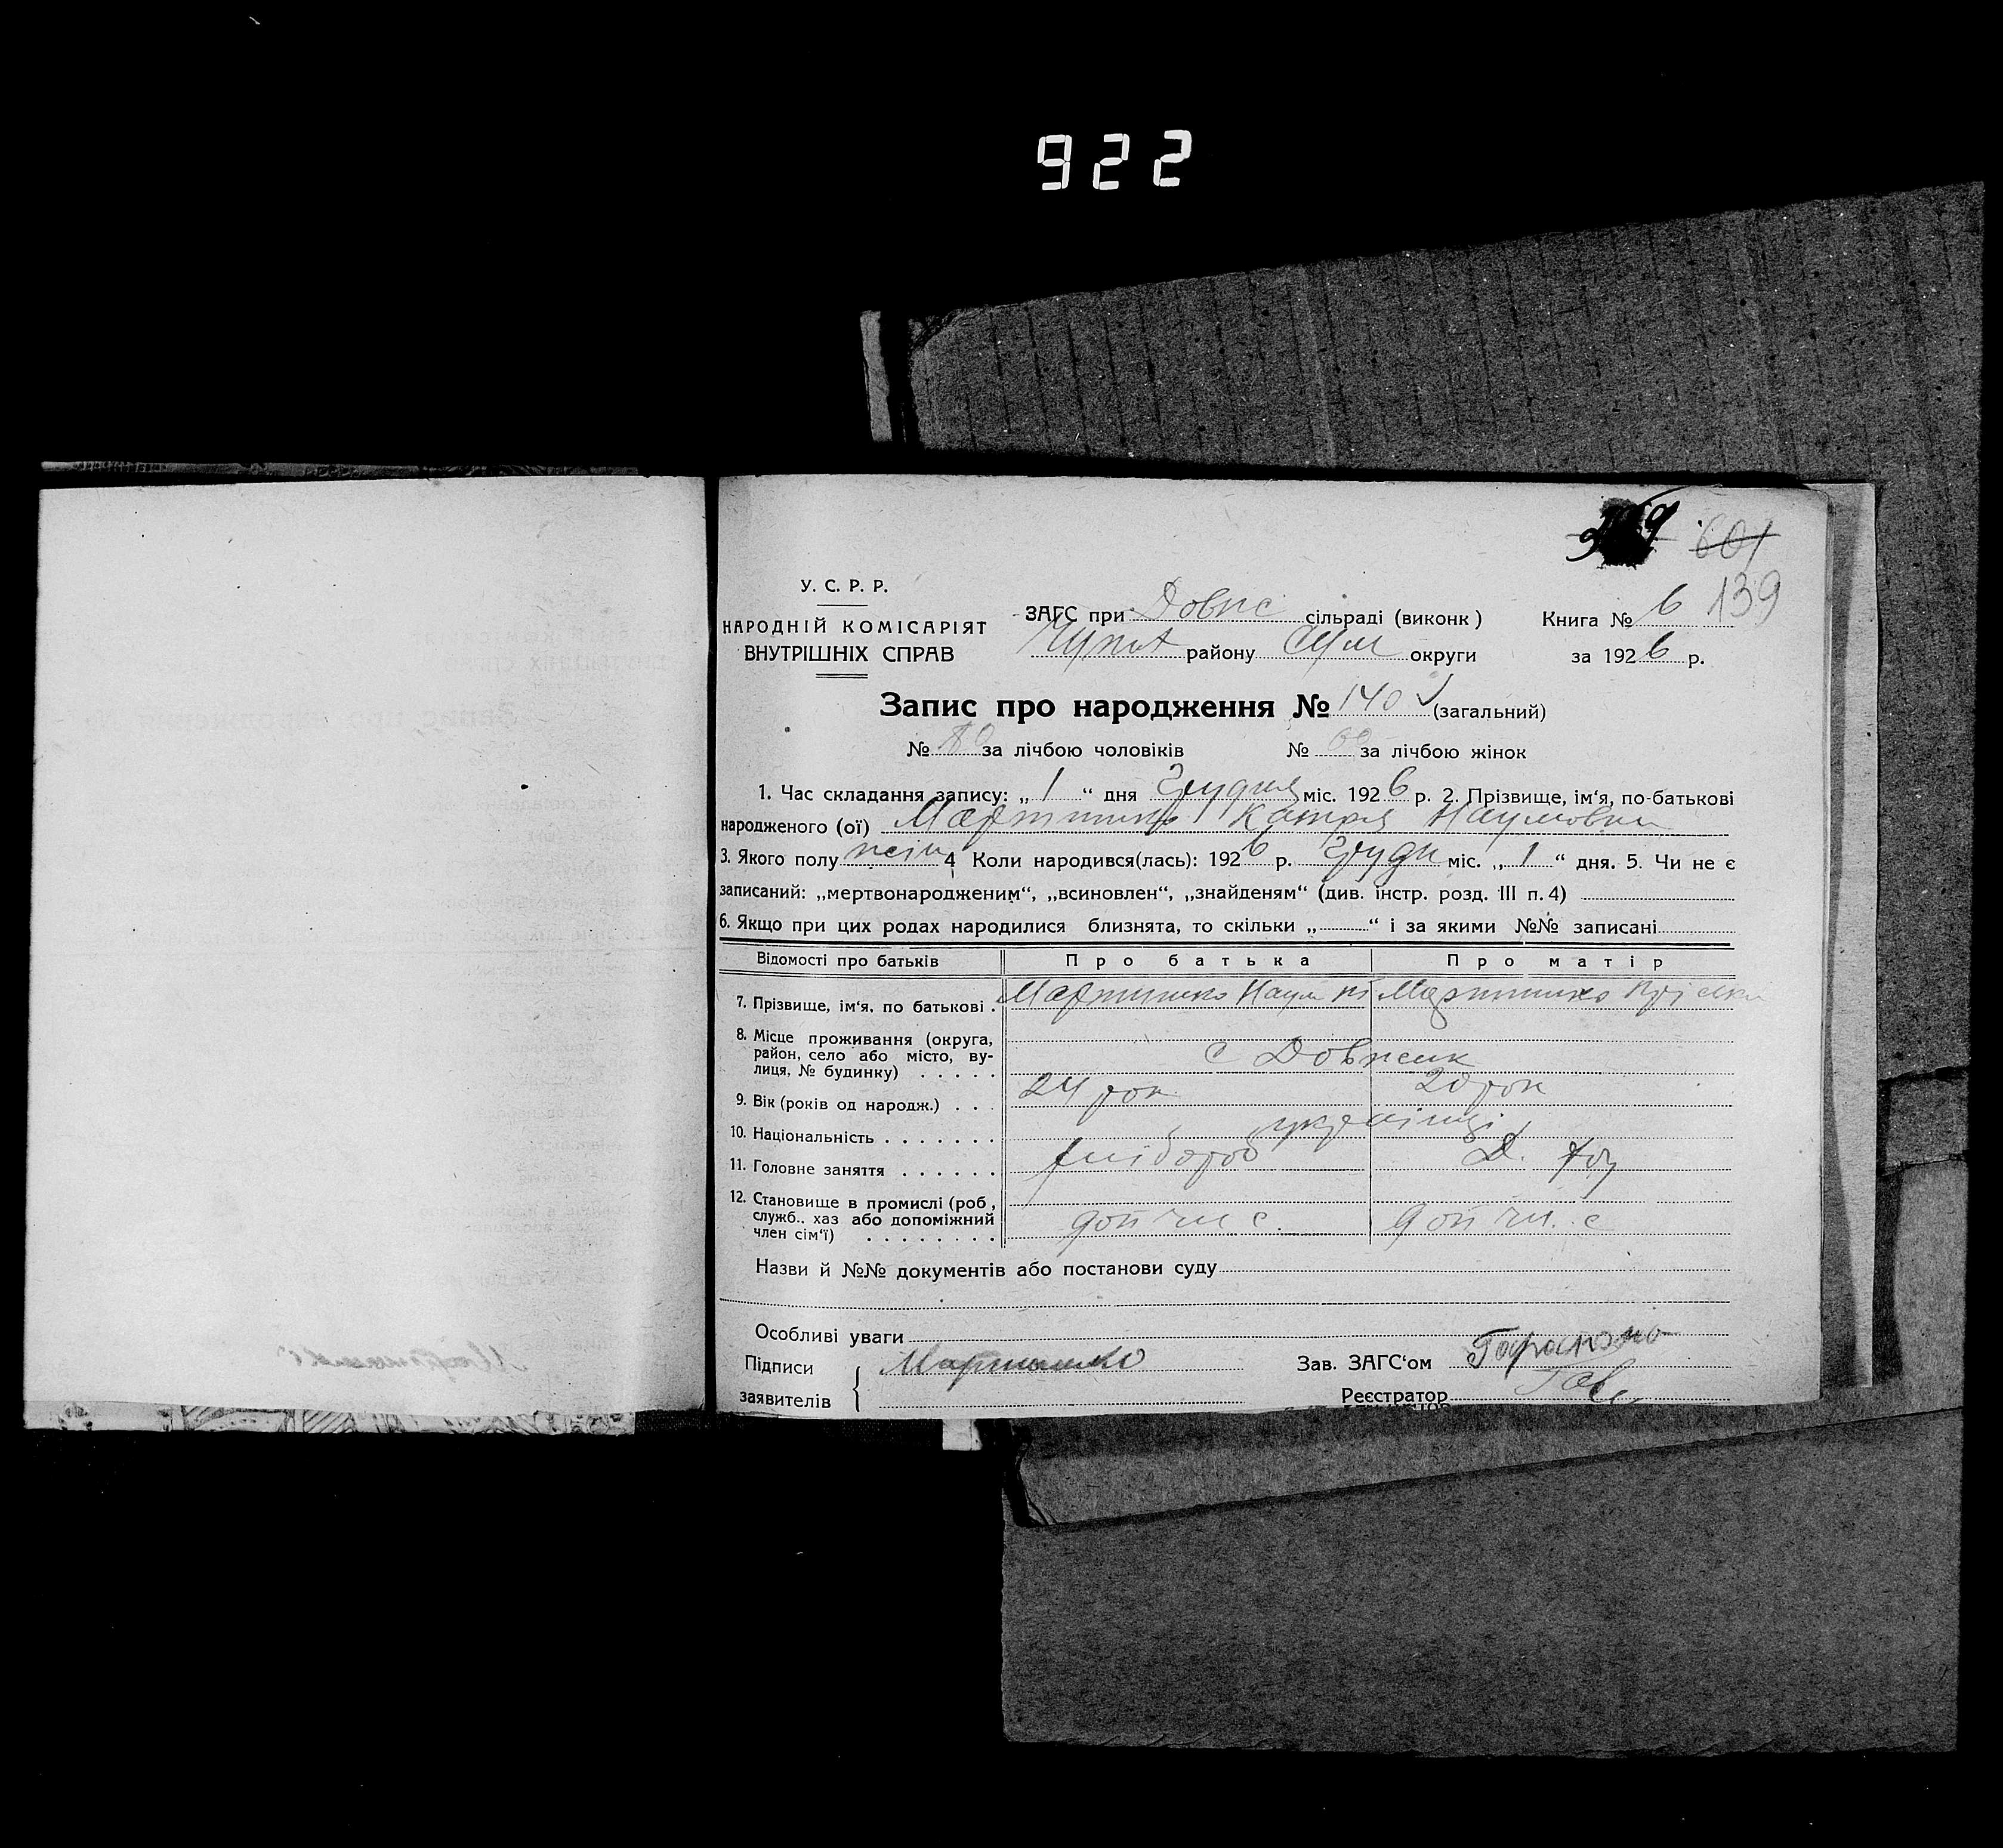 922
601
139
У. С. Р. Р.
НАРОДНІЙ КОМІСАРІЯТ
ВНУТРІШНІХ СПРАВ
ЗАГС при Довж сільраді (виконк)
району Сум округи
Книга № 6
за 1926 р.
Запис про народження № 140 (загальний)
№ за лічбою чоловіків № 60 за лічбою жінок
1. Час складання запису: „ 1 “ дня Грудня міс. 1926 р. 2. Прізвище, ім‘я, по-батькові
народженого (ої) Катря Наумовна
3. Якого полу жін 4 Коли народився(лась): 1926 р. Груд міс. „ 1 “ дня. 5. Чи не є
записаний: „мертвонародженим“, „всиновлен“, „знайденям“ (див. інстр. розд. III п. 4)
6. Якщо при цих родах народилися близнята, то скільки „ “ і за якими №№ записані
Відомості про батьків Про батька Про матір
7. Прізвище, ім‘я, по батькові . Мартишко Наум Мартишко
8. Місце проживання (округа, район, село або місто, вулиця, № будинку) . . . . . с Довжик
9. Вік (років од народж.) . . . 24 рок 20 рок
10. Національність . . . . . . . українці
11. Головне заняття . . . . . . хлібороб Д. гос
12. Становище в промислі (роб, служб.. хаз або допоміжний член сім‘ї) . . . . . . . . доп чл с. доп чл. с
Назви й №№ документів або постанови суду
Особливі уваги
Підписи
заявителів
Мартишко
Зав. ЗАГС‘ом
Реєстратор